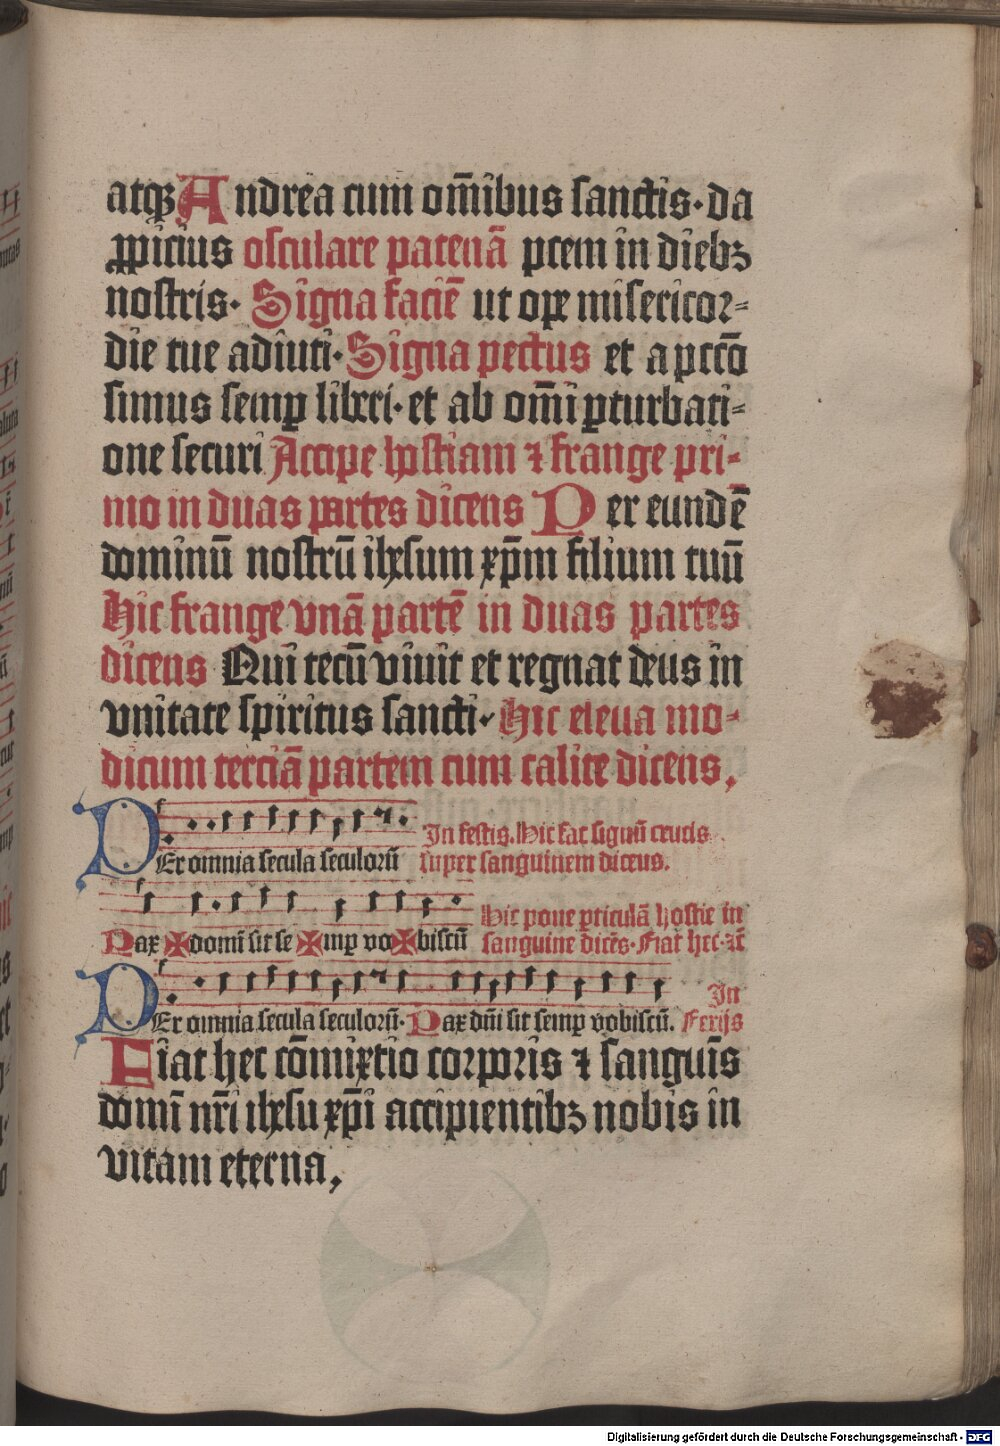 atqꝫ Andrea cum om̄ibus sanctis· da
ꝓpicius osculare patenā pcem in diebꝫ
nostris· Signa faciē ut ope misericor-
die tue adiuti· Signa pectus et a pctō
simus semꝑ liberi· et ab om̄i ꝑturbati-
one securi Accipe hostiam ⁊ frange pri-
mo in duas partes dicens Per eundē
dominū nostrū ihesum xp̄m filium tuū
Hic frange vnā partē in duas partes
dicens Qui tecū viuit et regnat deus in
vnitate spiritus sancti· Hic eleua mo-
dicum terciā partem cum calice dicens,
In festis. Hic fac signū crucis
PEr omnia secula seculorū super sanguinem dicens.
Hic pone ꝑticulā hostie in
Pax ✠ domī sit se ✠ mꝑ vo ✠ biscū sanguine dicēs· Fiat hec· ⁊c̄
In
PEr omnia secula seculorū· Pax dn̄i sit semꝑ vobiscū. Ferijs
Fiat hec cōmixtio corporis ⁊ sanguīs
domī nr̄i ihesu xp̄i accipientibꝫ nobis in
vitam eterna,
Digitalisierung gefördert durch die Deutsche Forschungsgemeinschaft - DFG